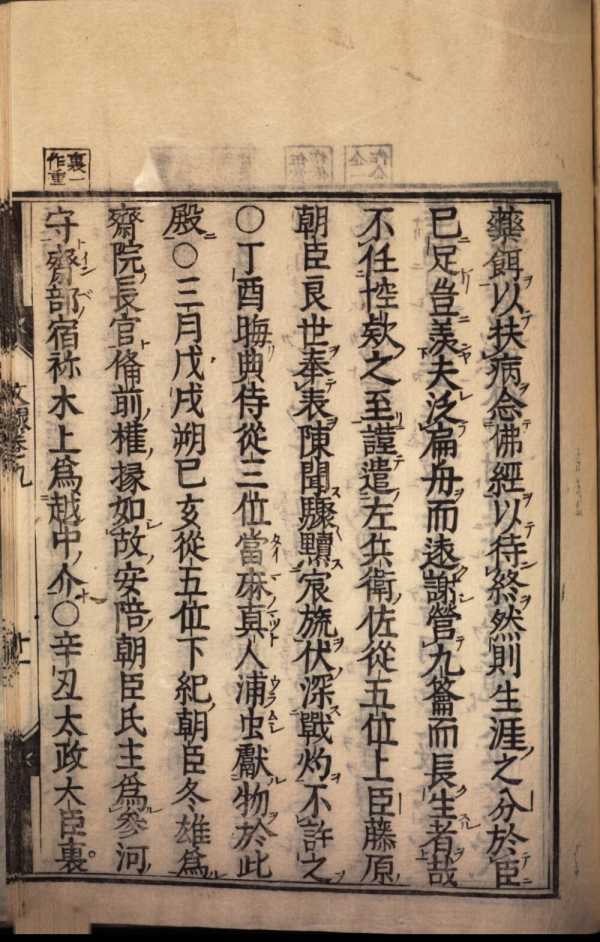 藥餌以扶病念佛經以待終然則生涯之分於臣
已足豈羨夫泛扁舟而遠謝營九籥而長生者哉
不任悾欵之至謹遣左兵衛佐從五位上臣藤原
朝臣良世奉表陳聞驟黷宸旒伏深戰灼不許之
○丁酉晦典侍從三位當麻真人浦虫獻物於此
殿○三月戊戌朔己亥從五位下紀朝臣冬雄爲
齋院長官備前權掾如故安陪朝臣氏主爲參河
守齋部宿祢木上爲越中介○辛丑太政大臣裏
裏一作重
文 卷九
十一